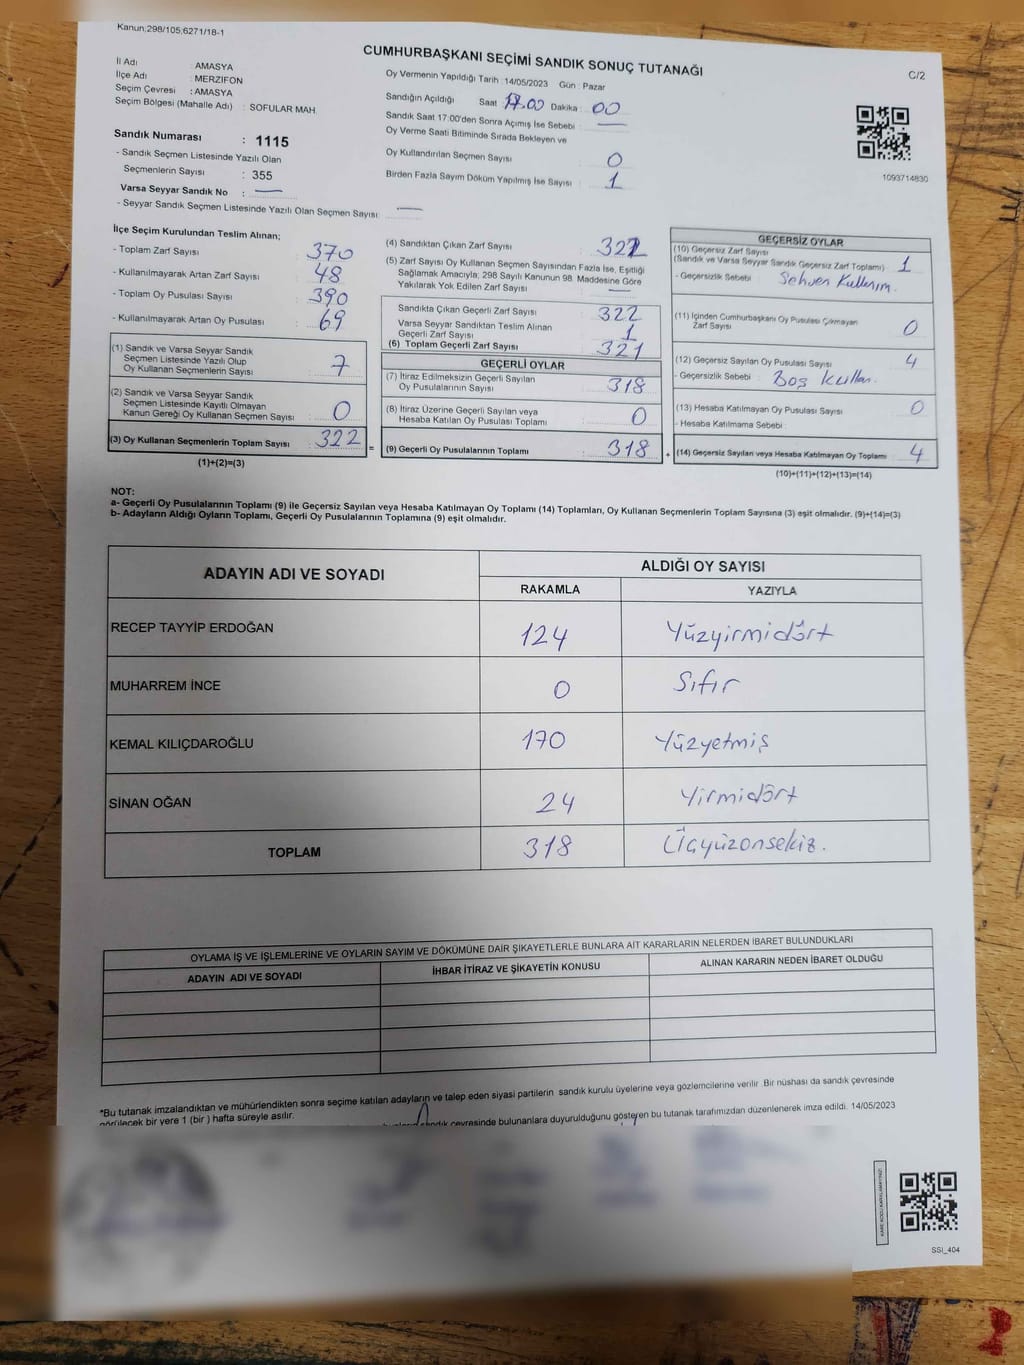 Kanun;298/105;6271/18-1
CUMHURBAŞKANI SEÇİMİ SANDIK SONUÇ TUTANAĞI
C/2
İl Adı : AMASYA
İlçe Adı : MERZİFON
Seçim Çevresi : AMASYA
Seçim Bölgesi (Mahalle Adı) : SOFULAR MAH.
Sandık Numarası : 1115
- Sandık Seçmen Listesinde Yazılı Olan
Seçmenlerin Sayısı : 355
Varsa Seyyar Sandık No : —
- Seyyar Sandık Seçmen Listesinde Yazılı Olan Seçmen Sayısı: —
Oy Vermenin Yapıldığı Tarih : 14/05/2023 Gün : Pazar
Sandığın Açıldığı Saat : 17.00 Dakika : 00
Sandık Saat 17:00'den Sonra Açımış İse Sebebi : —
Oy Verme Saati Bitiminde Sırada Bekleyen ve
Oy Kullandırılan Seçmen Sayısı : 0
Birden Fazla Sayım Döküm Yapılmış İse Sayısı : 1
1093714830
İlçe Seçim Kurulundan Teslim Alınan;
- Toplam Zarf Sayısı : 370
- Kullanılmayarak Artan Zarf Sayısı : 48
- Toplam Oy Pusulası Sayısı : 390
- Kullanılmayarak Artan Oy Pusulası : 69
(1) Sandık ve Varsa Seyyar Sandık
Seçmen Listesinde Yazılı Olup
Oy Kullanan Seçmenlerin Sayısı : 7
(2) Sandık ve Varsa Seyyar Sandık
Seçmen Listesinde Kayıtlı Olmayan
Kanun Gereği Oy Kullanan Seçmen Sayısı : 0
(3) Oy Kullanan Seçmenlerin Toplam Sayısı : 322 =
(1)+(2)=(3)
(4) Sandıktan Çıkan Zarf Sayısı : 322
(5) Zarf Sayısı Oy Kullanan Seçmen Sayısından Fazla İse, Eşitliği
Sağlamak Amacıyla; 298 Sayılı Kanunun 98. Maddesine Göre
Yakılarak Yok Edilen Zarf Sayısı : —
Sandıkta Çıkan Geçerli Zarf Sayısı : 322
Varsa Seyyar Sandıktan Teslim Alınan
Geçerli Zarf Sayısı : 1
(6) Toplam Geçerli Zarf Sayısı : 321
GEÇERLİ OYLAR
(7) İtiraz Edilmeksizin Geçerli Sayılan
Oy Pusulalarının Sayısı : 318
(8) İtiraz Üzerine Geçerli Sayılan veya
Hesaba Katılan Oy Pusulası Toplamı : 0
(9) Geçerli Oy Pusulalarının Toplamı : 318 +
GEÇERSİZ OYLAR
(10) Geçersiz Zarf Sayısı
(Sandık ve Varsa Seyyar Sandık Geçersiz Zarf Toplamı) : 1
- Geçersizlik Sebebi : Sehven Kullanım.
(11) İçinden Cumhurbaşkanı Oy Pusulası Çıkmayan
Zarf Sayısı : 0
(12) Geçersiz Sayılan Oy Pusulası Sayısı : 4
- Geçersizlik Sebebi : Boş kullan.
(13) Hesaba Katılmayan Oy Pusulası Sayısı : 0
- Hesaba Katılmama Sebebi :
(14) Geçersiz Sayılan veya Hesaba Katılmayan Oy Toplamı : 4
(10)+(11)+(12)+(13)=(14)
NOT:
a- Geçerli Oy Pusulalarının Toplamı (9) ile Geçersiz Sayılan veya Hesaba Katılmayan Oy Toplamı (14) Toplamları, Oy Kullanan Seçmenlerin Toplam Sayısına (3) eşit olmalıdır. (9)+(14)=(3)
b- Adayların Aldığı Oyların Toplamı, Geçerli Oy Pusulalarının Toplamına (9) eşit olmalıdır.
ADAYIN ADI VE SOYADI
ALDIĞI OY SAYISI
RAKAMLA YAZIYLA
RECEP TAYYİP ERDOĞAN 124 Yüzyirmidört
MUHARREM İNCE 0 Sıfır
KEMAL KILIÇDAROĞLU 170 Yüzyetmiş
SİNAN OĞAN 24 Yirmidört
TOPLAM 318 Üçyüzonsekiz.
OYLAMA İŞ VE İŞLEMLERİNE VE OYLARIN SAYIM VE DÖKÜMÜNE DAİR ŞİKAYETLERLE BUNLARA AİT KARARLARIN NELERDEN İBARET BULUNDUKLARI
ADAYIN ADI VE SOYADI İHBAR İTİRAZ VE ŞİKAYETİN KONUSU ALINAN KARARIN NEDEN İBARET OLDUĞU
*Bu tutanak imzalandıktan ve mühürlendikten sonra seçime katılan adayların ve talep eden siyasi partilerin sandık kurulu üyelerine veya gözlemcilerine verilir. Bir nüshası da sandık çevresinde
görülecek bir yere 1 (bir) hafta süreyle asılır.
sandık çevresinde bulunanlara duyurulduğunu gösteren bu tutanak tarafımızdan düzenlenerek imza edildi. 14/05/2023
SSI_404